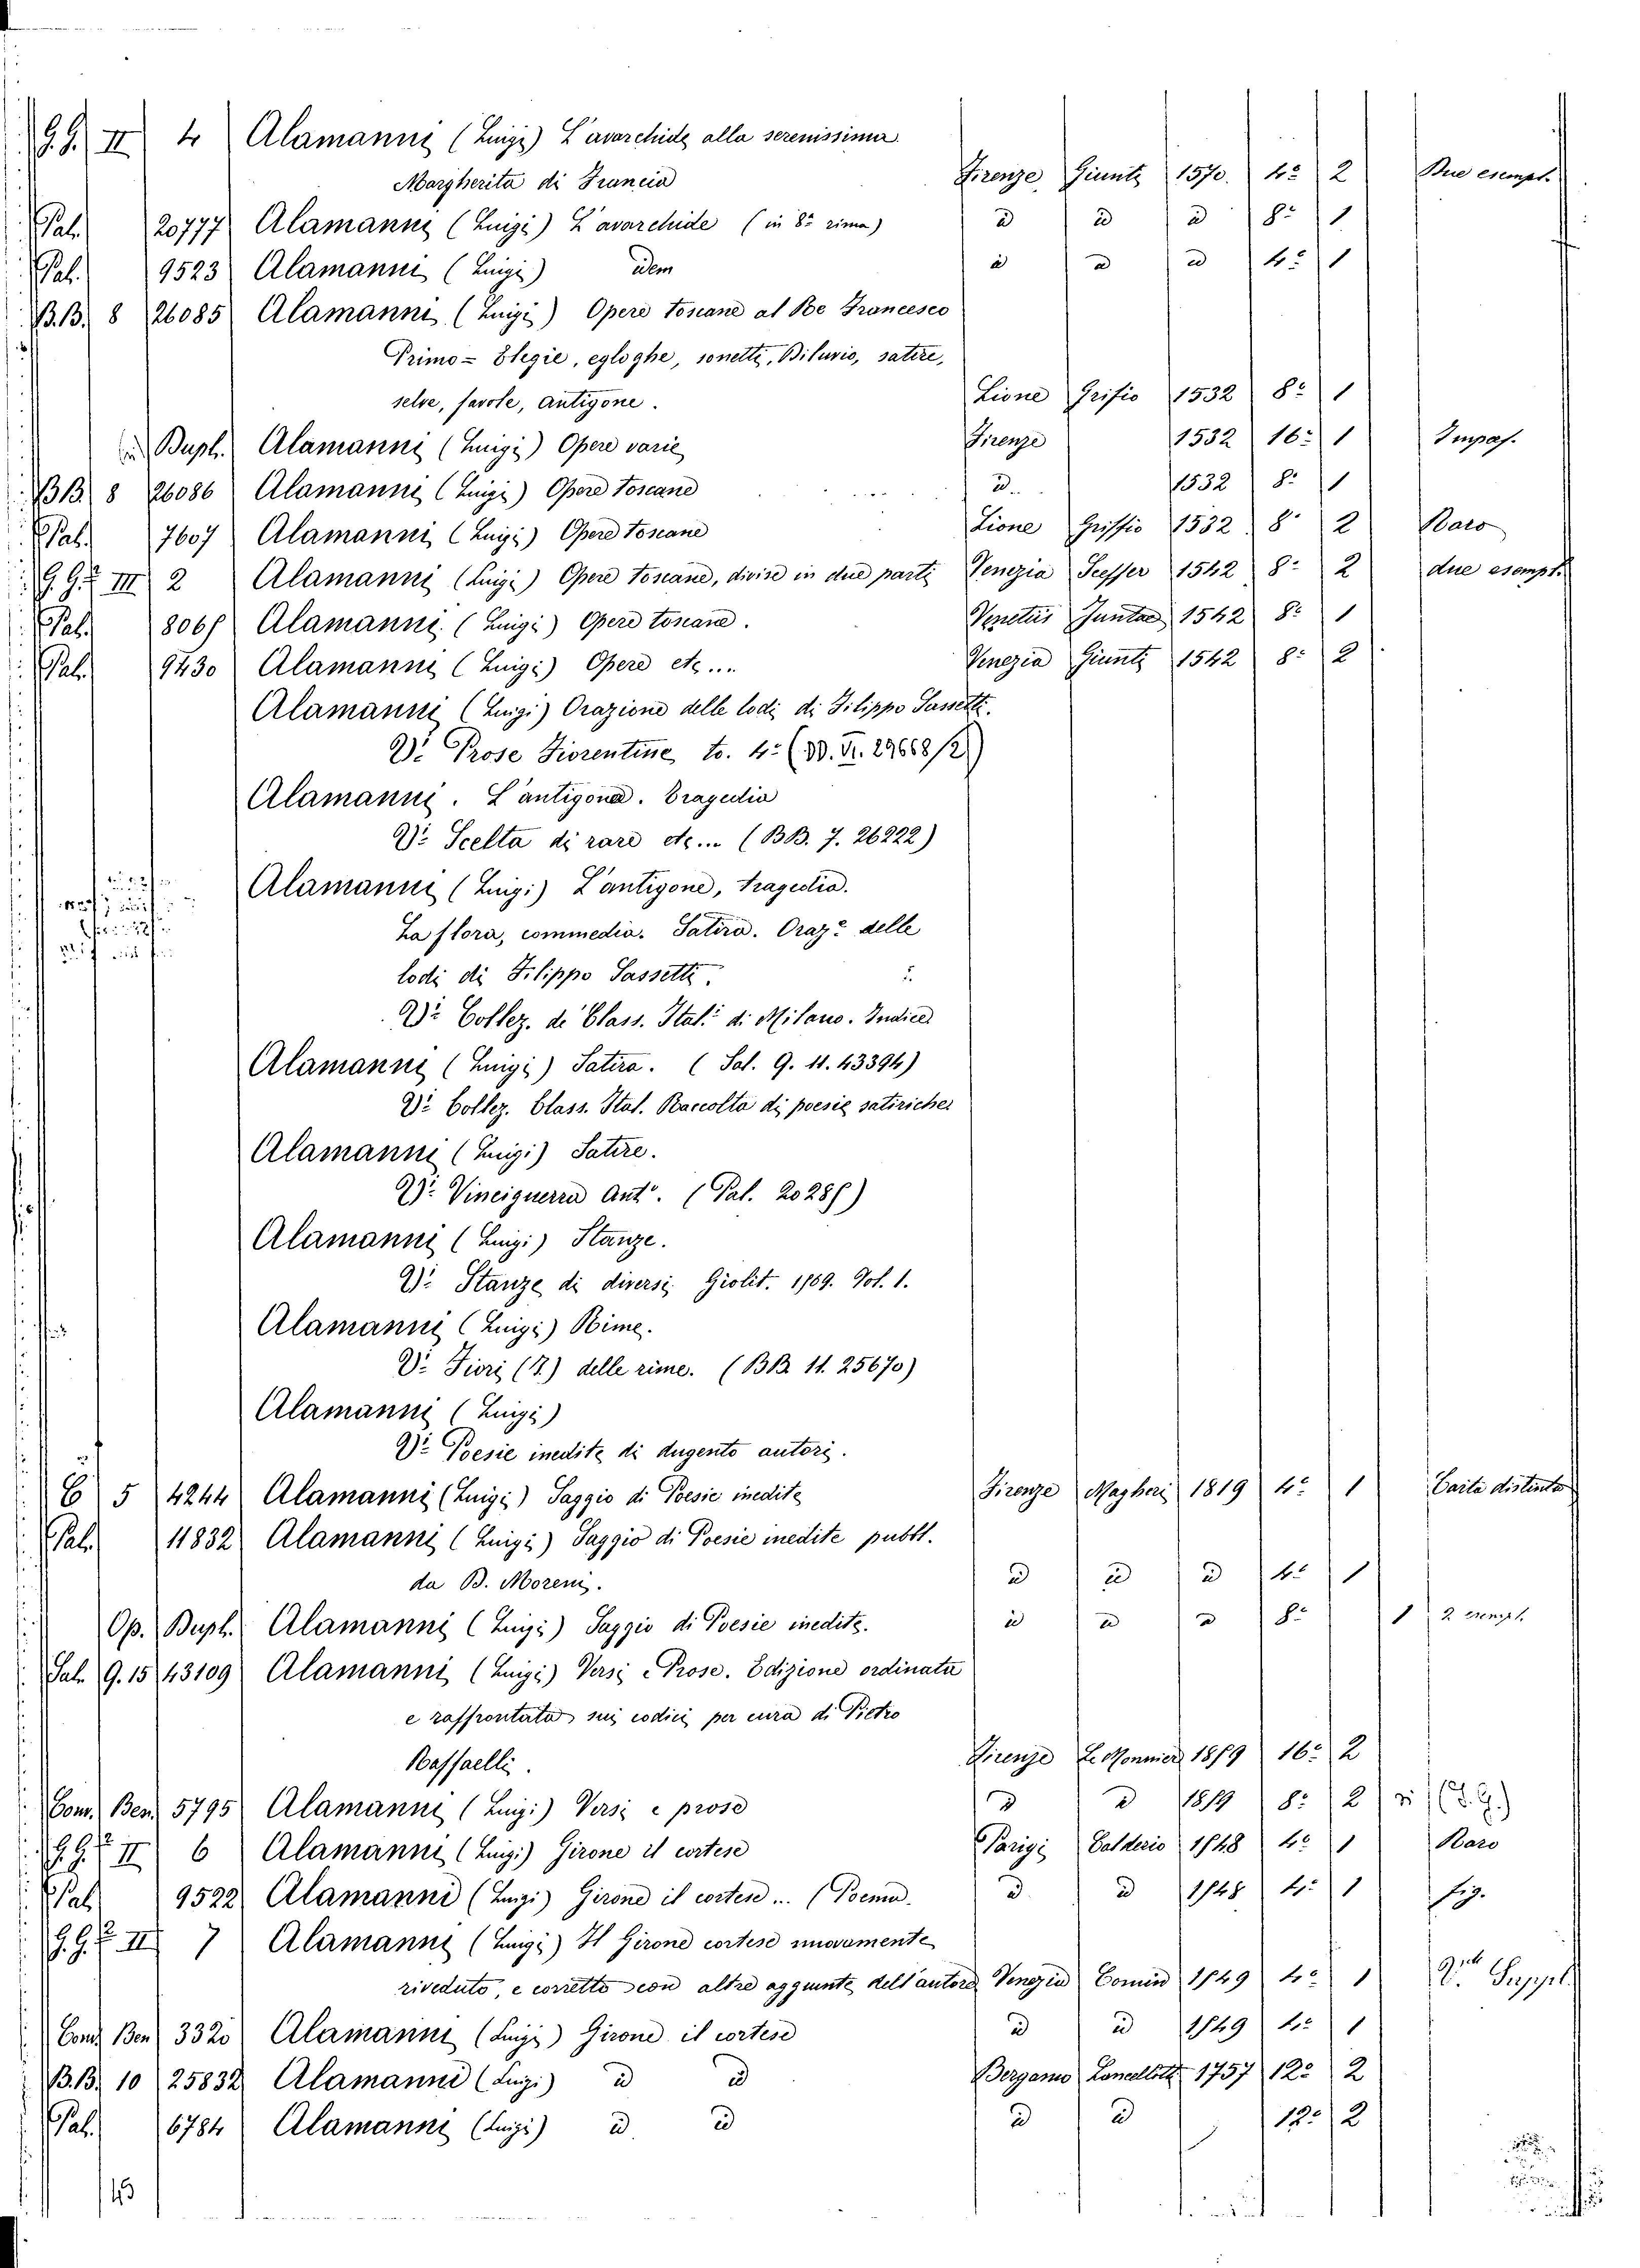 G.G. II 4 Alamanni (Luigi) L'avarchide alla serenissima
Margherita di Francia Firenze Giunti 1570. 4º 2 Due esempl.
Pal. 20777 Alamanni (Luigi) L'avarchide (in 8ª rima) id id id 8º 1
Pal. 9523 Alamanni (Luigi) idem id id id 4º 1
B.B. 8 26085 Alamanni (Luigi) Opere toscane al Re Francesco
Primo = Elegie, egloghe, sonetti, Diluvio, satire,
selve, favole, antigone. Lione Grifio 1532 8º 1
Dupl. Alamanni (Luigi) Opere varie Firenze 1532 16º 1
B.B. 8 26086 Alamanni (Luigi) Opere toscane id. 1532 8º 1
Pal. 7607 Alamanni (Luigi) Opere toscane Lione Griffio 1532 8º 2 Raro
G.G. III 2 Alamanni (Luigi) Opere toscane, divise in due parti Venezia 1542 8º 2 due esempl.
Pal. Alamanni (Luigi) Opere toscane. Venetiis Juntae 1542 8º 1
Pal. 9430 Alamanni (Luigi) Opere etc... Venezia Giunti 1542 8º 2
Alamanni (Luigi) Orazione delle lodi di Filippo Sassetti.
Vi. Prose Fiorentine to. 4º
Alamanni. L'antigone. Tragedia
Vi. Scelta di rare etc... (BB. 7. 26222)
Alamanni (Luigi) L'antigone, tragedia.
La flora, commedia. Satira. Oraz.e delle
lodi di Filippo Sassetti.
Vi. Collez. de' Class. Ital.i di Milano. Indice
Alamanni (Luigi) Satira. (Sal. 9. 11. 43394)
Vi. Collez. Class. Ital. Raccolta di poesie satiriche
Alamanni (Luigi) Satire.
Vi. Vinciguerra Ant.o.
Alamanni (Luigi) Stanze.
Vi. Stanze di diversi. Giolit. Vol. 1.
Alamanni (Luigi) Rime.
Vi. Fiori (I) delle rime. (BB. 11. 25670)
Alamanni (Luigi)
Vi. Poesie inedite di dugento autori.
5 4244 Alamanni (Luigi) Saggio di Poesie inedite Firenze Magheri 1819 4º 1 Carta distinta
Pal. 11832 Alamanni (Luigi) Saggio di Poesie inedite pubbl.
da D. Moreni. id id id 4º 1
Op. Dupl. Alamanni (Luigi) Saggio di Poesie inedite. id id id 8º 1 2 esempl.
Sal. 9. 15 43109 Alamanni (Luigi) Versi e Prose. Edizione ordinata
e raffrontata sui codici per cura di Pietro
Raffaelli. Firenze Le Monnier 1859 16º 2
Com. Ben. 5795 Alamanni (Luigi) Versi e prose id id 1859 8º 2
G.G. II 6 Alamanni (Luigi) Girone il cortese Parigi Calderio 1548 4º 1 Raro
Pal. 9522 Alamanni (Luigi) Girone il cortese ... (Poema. id id 1548 4º 1 fig.
G.G. II 7 Alamanni (Luigi) Il Girone cortese nuovamente
riveduto, e corretto con altre aggiunte dell'autore Venezia Comin 1549 4º 1 Suppl.
Com. Ben. 3320 Alamanni (Luigi) Girone il cortese id id 1549 4º 1
B.B. 10 25832 Alamanni (Luigi) id id Bergamo Lancellotti 1757 12º 2
Pal. 6784 Alamanni (Luigi) id id id id 12º 2